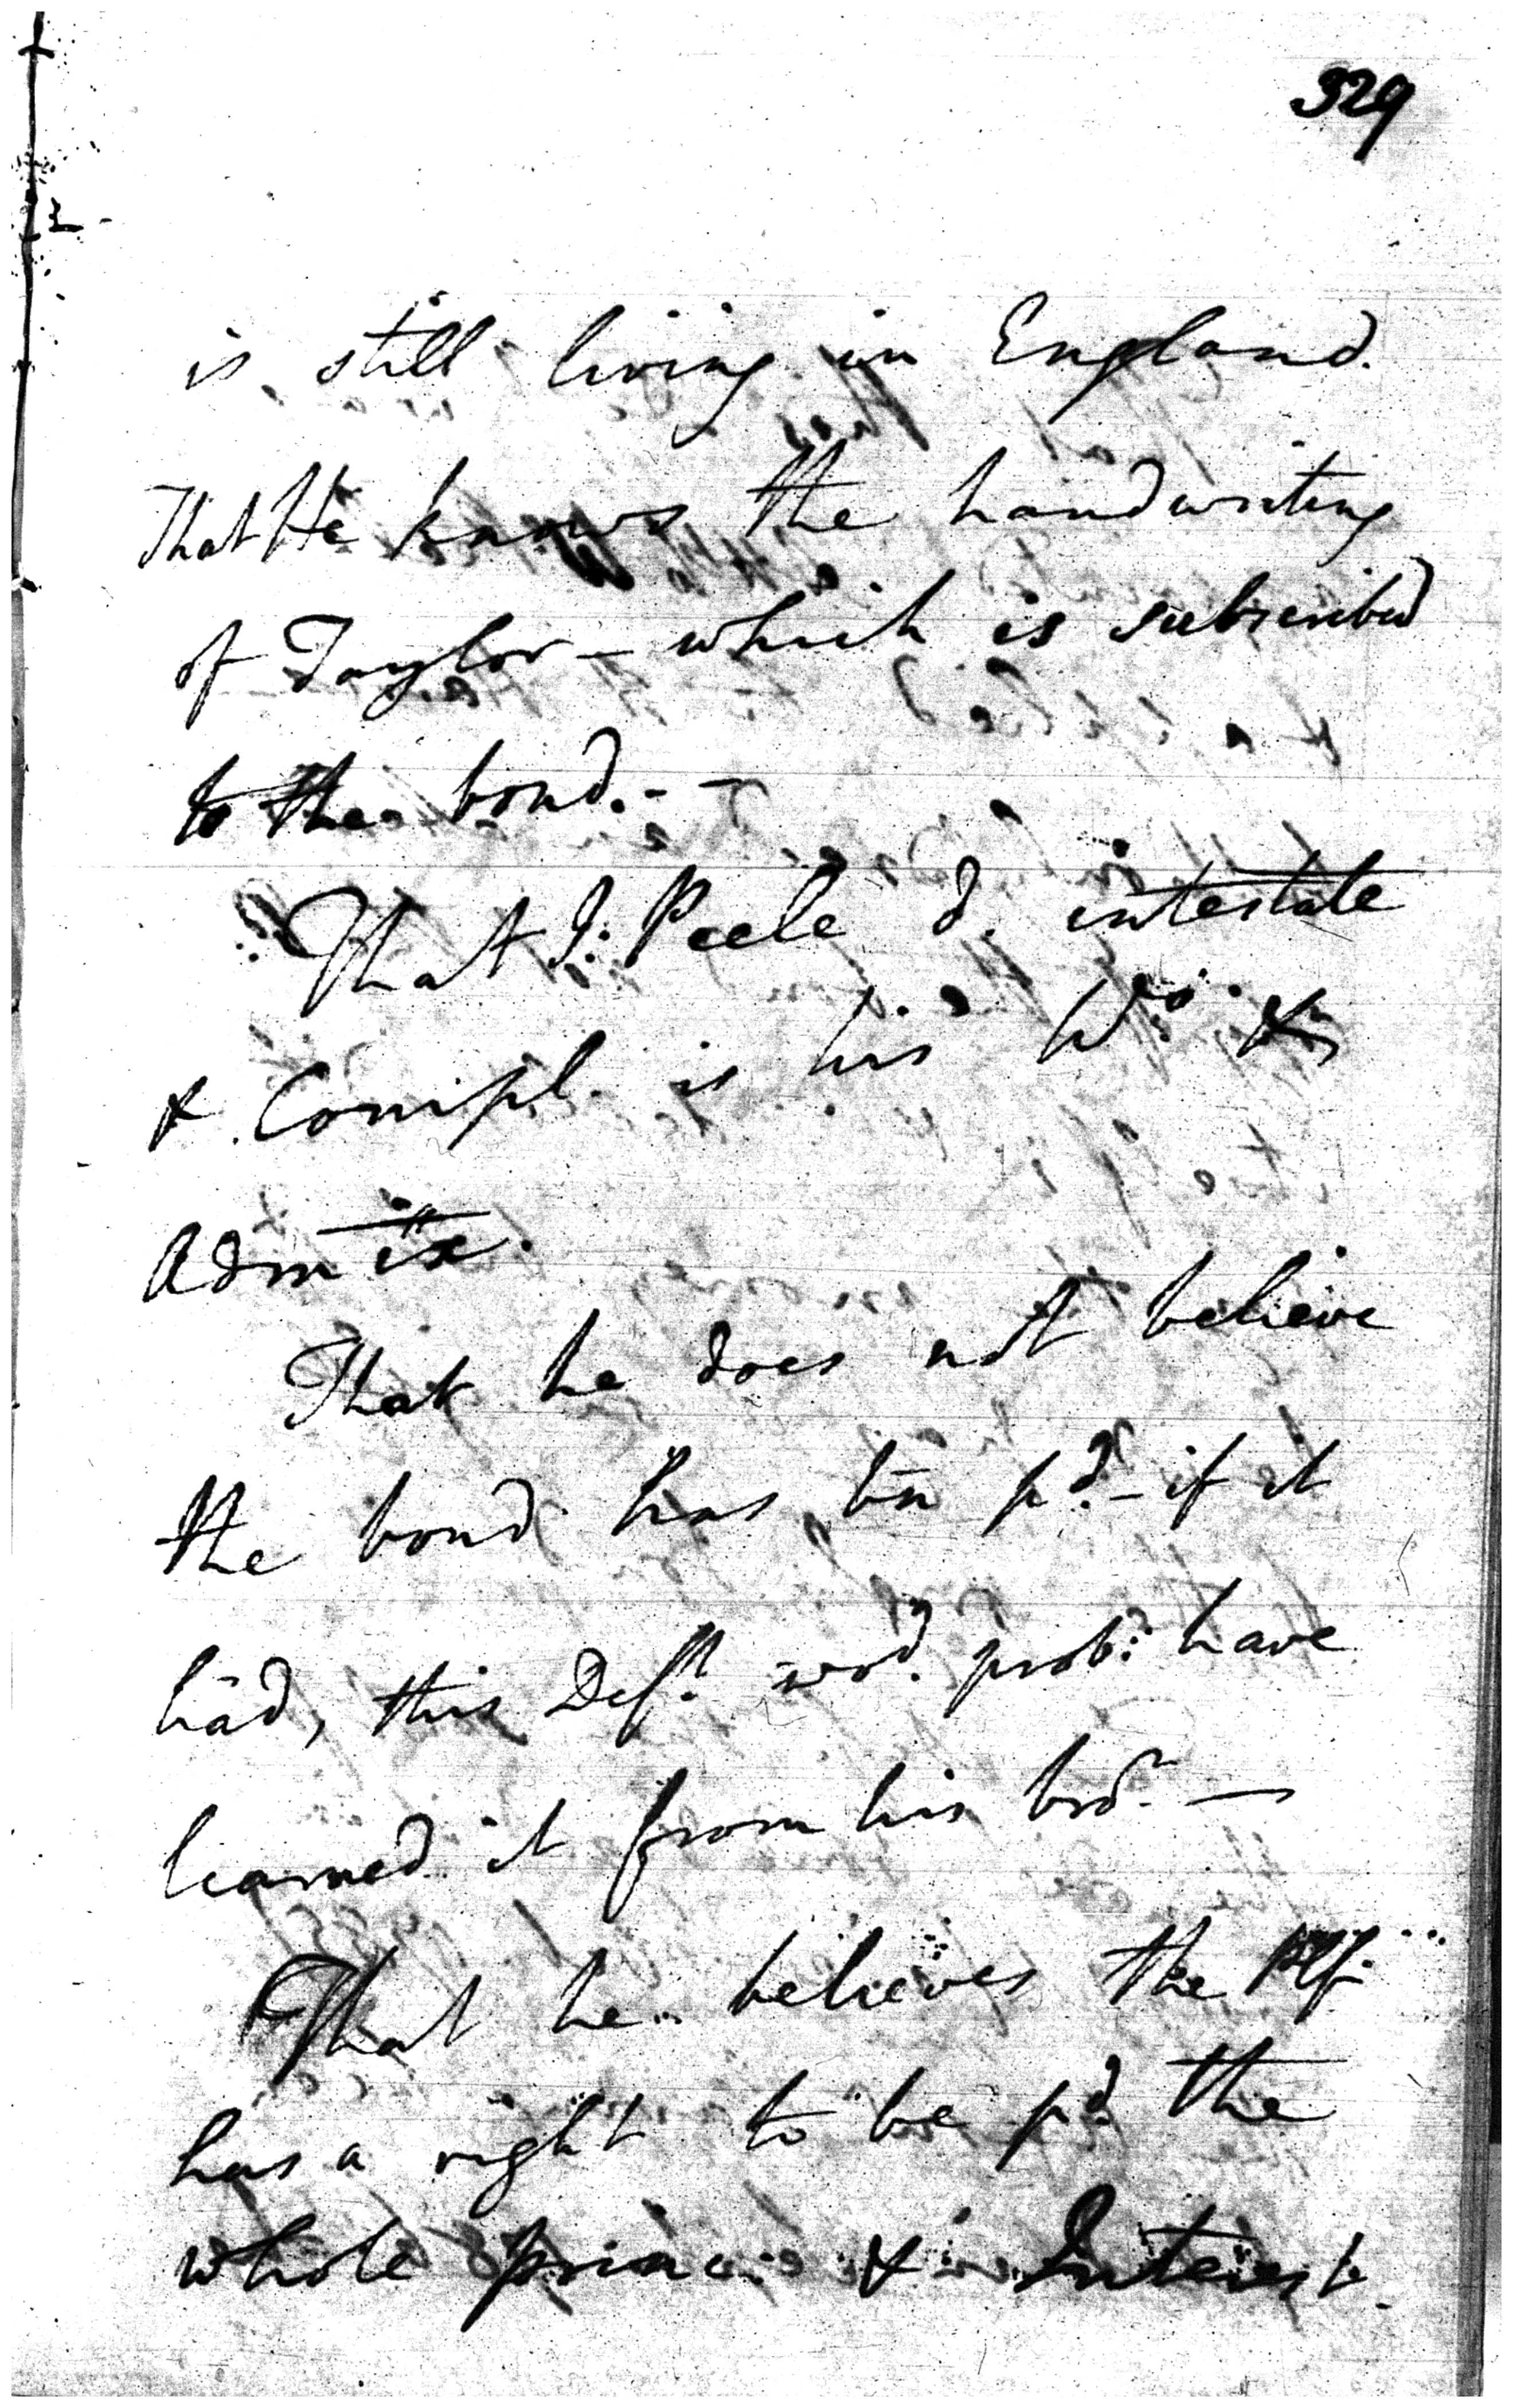 329
is still living in England.
That He knows the handwriting
of Taylor - which is subscribed
to the bond. - -
That J: Peele d. intestate
& Compl. is his Wo. &
Admix.
That he does not believe
the bond has bn pd. - if it
had, this Deft. wod. prob: have
learned it from his bror. —
That he believes the Plf.
has a right to be pd the
whole princ: & Interest.